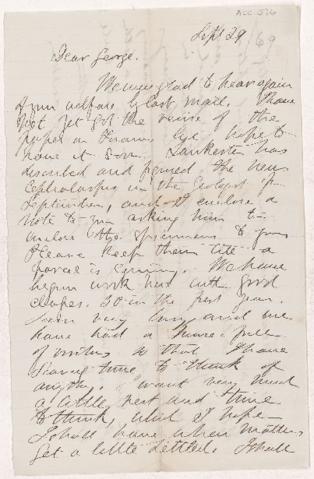 ACC-576
Sept 29 /69
Dear George.
We were glad to hear again
of your welfare by last mail. I have
not yet got the revise of the
paper on Fauna but hope to
have it soon. Lankester has
described and figured the new
Cephalaspis in the Geologist for
September, and I enclose a
note to you asking him to
enclose the specimens to you
Please keep them till a
chance is coming. We have
begun work here with good
classes. 30 in the first year.
been very busy and we
have had a house full
of visitors so that I have
scarcely time to think of
anything. I want very much
a little rest and time
to think, what I hope
I shall have when matters
get a little settled. I shall